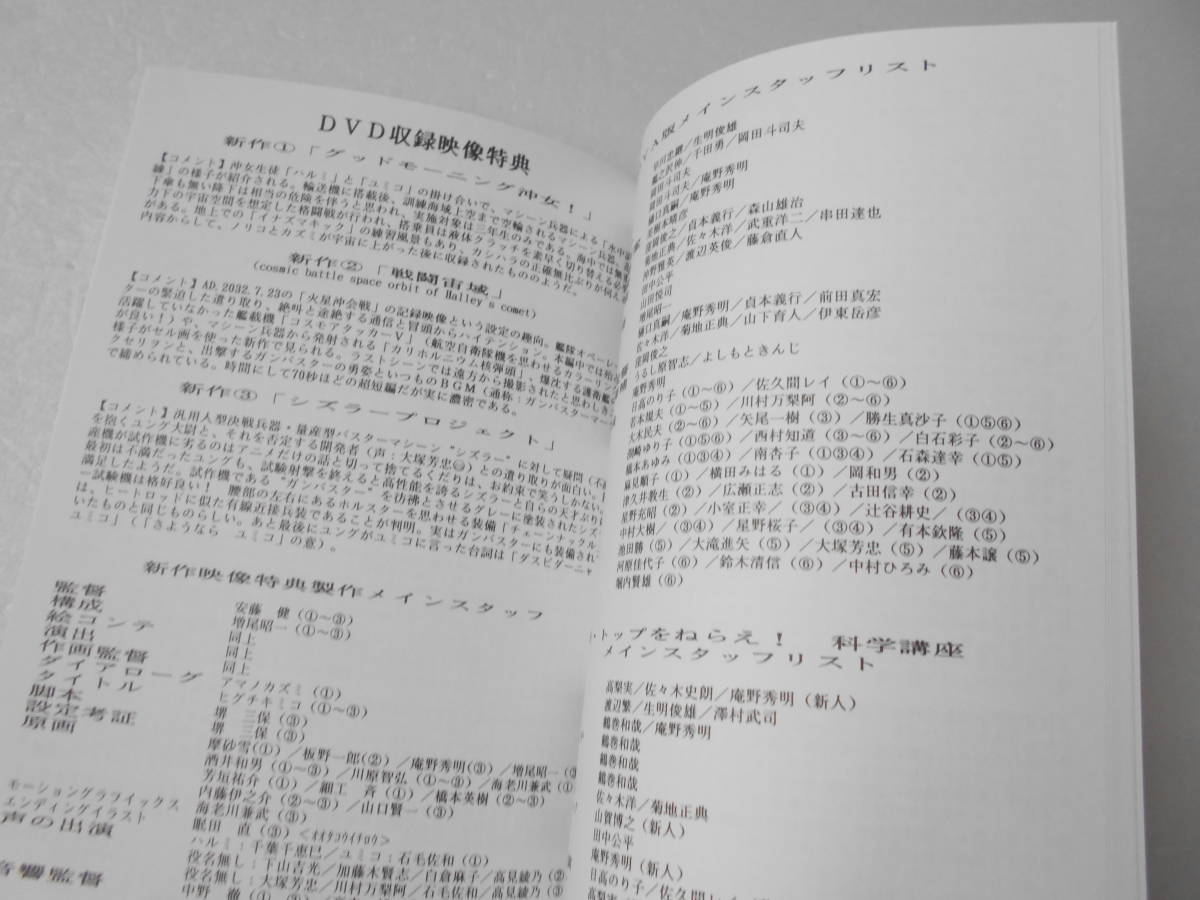 DVD収録映像特典
新作①「グッドモーニング沖女!」
【コメント】沖女生徒「ハルミ」と「ユミコ」の掛け合いで、マシーン兵器による「水中訓
練」の様子が紹介される。輸送機に搭載後、訓練海域上空まで空輸されるマシーン兵器。
下傘も無い降下は相当の危険を伴うと思われ、実施対象は三年生のみである。海中では無重
力下の宇宙空間を想定した格闘戦が行われ、搭乗員は液体クラッチを素早く切り替える必要
がある。地上での「イナズマキック」の練習風景もあり、カシハラの正確無比ぶりが伺え
内容からして、ノリコとカズミが宇宙に上がった後に収録されたもののようだ。
新作②「戦闘宙域」
(cosmic battle space orbit of Halley's comet)
【コメント】AD.2032.7.23の「火星沖会戦」の記録映像という設定の趣向。艦隊オペレー
ターの緊迫した遣り取り、絶叫と途絶する通信と冒頭からハイテンション。本編中では
活躍していなかった艦載機「コスモアタッカーV」(航空自衛隊機を思わせるカラーリング
が良い!)や、マシーン兵器から発射される「カリホルニウム核弾頭」、爆沈する護衛艦
様子がセル画を使った新作で見られる。ラストシーンでは遠方から撮影されたと思わしき
クセリヲンと、出撃するガンバスターの勇姿といつものBGM(通称:ガンバスターマー
で締められている。時間にして70秒ほどの超短編だが実に濃密である。
新作③「シズラープロジェクト」
【コメント】汎用人型決戦兵器・量産型バスターマシーン"シズラー"に対して疑問(不
を抱くユング大尉と、それを否定する開発者(声:大塚芳忠)との遣り取りが面白い。
産機が試作機に劣るのはアニメだけの話と切って捨てるくだりは、お約束で笑うしかない。
最初は不満だったユングも、試験射撃を終えると高性能を誇るシズラーと自らの天才ぶりに
満足したようだ。試作機である"ガンバスター"を彷彿とさせるグレーに塗装されたシズ
ー試験機は格好良い! 腰部の左右にあるホルスターを思わせる装備「チェーンナックル
は、ヒートロッドに似た有線近接兵装であることが判明。実はガンバスターにも装備され
いたものと同じものらしい。あと最後にユングがユミコに言った台詞は「ダスビダーニャ
ユミコ」(「さようなら ユミコ」の意)。
新作映像特典製作メインスタッフ
監督 安藤 健(①~③)
構成 増尾昭一(①~③)
絵コンテ 同上
演出 同上
作画監督 同上
ダイアローグ アマノカズミ(①)
タイトル ヒグチキミコ(①~③)
脚本 堺 三保(③)
設定考証 堺 三保(③)
原画 摩砂雪(①)/板野一郎(②)/庵野秀明(③)/増尾昭一(②
酒井和男(①~③)/川原智弘(①~③)/海老川兼武(①
芳垣祐介(①)/細工 斉(①)/橋本英樹(②~③)
内藤伊之介(②~③)/山口賢一(③)
モーショングラフイックス 海老川兼武(③)
エンディングイラスト 眠田 直(③)<オオタコウイチロウ>
声の出演 ハルミ:千葉千恵巳/ユミコ:石毛佐和(①)
役名無し:下山吉光/加藤木賢志/白倉麻子/高見綾乃(②
役名無し:大塚芳忠/川村万梨阿/石毛佐和/高見綾乃(③
音響監督 中野 徹(①~③)
VA版メインスタッフリスト
忠雅/生明俊雄
亀之沢伸/千田勇/岡田斗司夫
岡田斗司夫
岡田斗司夫/庵野秀明
樋口真嗣/庵野秀明
美樹本晴彦
窪岡俊之/貞本義行/森山雄治
菊地正典/佐々木洋/武重洋二/串田達也
沖野雅英/渡辺英俊/藤倉直人
田中公平
山田悦司
増尾昭一
樋口真嗣/庵野秀明/貞本義行/前田真宏
佐々木洋/菊地正典/山下育人/伊東岳彦
窪岡俊之
うるし原智志/よしもときんじ
庵野秀明
日高のり子(①~⑥)/佐久間レイ(①~⑥)
若本規夫(①~⑤)/川村万梨阿(②~⑥)
大木民夫(②~⑥)/矢尾一樹(③)/勝生真沙子(①⑤⑥)
渕崎ゆり子(①⑤⑥)/西村知道(③~⑥)/白石彩子(②~⑥)
橋本あゆみ(①③④)/南杏子(①③④)/石森達幸(①⑤)
麻見順子(①)/横田みはる(①)/岡和男(②)
津久井教生(②)/広瀬正志(②)/古田信幸(②)
星野充昭(②)/小室正幸/(③④)/辻谷耕史/(③④)
中村大樹/(③④)/星野桜子/(③④)/有本欽隆(⑤)
池田勝(⑤)/大滝進矢(⑤)/大塚芳忠(⑤)/藤本譲(⑤)
河原佳代子(⑥)/鈴木清信(⑥)/中村ひろみ(⑥)
堀内賢雄(⑥)
・トップをねらえ! 科学講座
メインスタッフリスト
高梨実/佐々木史朗/庵野秀明(新人)
渡辺繁/生明俊雄/澤村武司
鶴巻和哉/庵野秀明
鶴巻和哉
鶴巻和哉
鶴巻和哉
佐々木洋/菊地正典
山賀博之(新人)
田中公平
庵野秀明(新人)
日高のり子/佐久間レイ